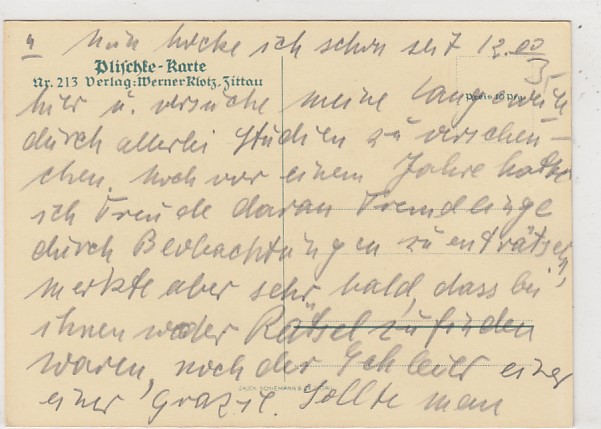 4 Nun hocke ich schon seit 12.00
Plischke-Karte
Nr. 213 Verlag: Werner Klotz, Zittau
Preis 10 Pfg.
hier u. versuche meine Langeweile
durch allerlei Studien zu verscheu-
chen. Noch vor einem Jahre hatte
ich Freude daran Fremdlinge
durch Beobachtungen zu enträtseln,
merkte aber sehr bald, dass bei
ihnen weder Rätsel zu finden
waren, noch der Schleier einer
einer Grazie. Sollte man